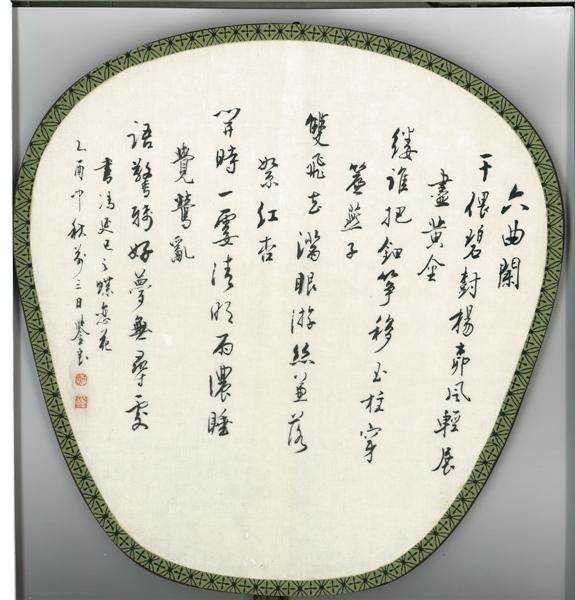 六曲闌
干偎碧樹楊柳风輕展
盡黄金
縷谁把鈿筝移玉柱穿
簾燕子
雙飛去滿眼游絲兼落
絮红杏
開時一霎清明雨濃睡
覺鶯亂
語驚殘好夢無尋處
書馮延巳之蝶恋花
乙酉中秋前三日